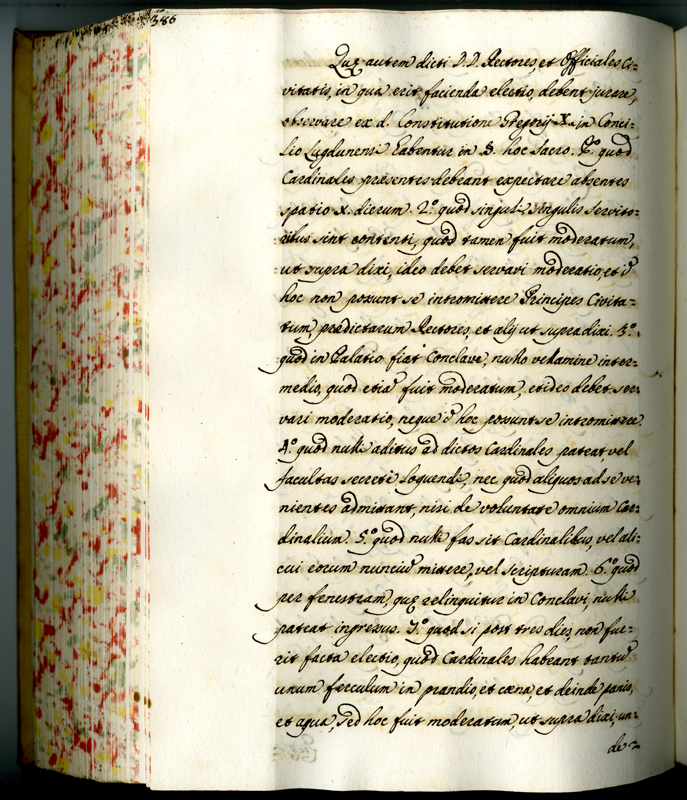 386
Quę autem dicti D.D. Rectores, et Officiales Ci=
vitatis, in qua erit facienda electio, debent jurare,
observare ex d. Constitutione Gregorij X. in Conci=
lio Lugdunensi habentur in §. hoc sacro. P.º quod
Cardinales praesentes debeant expectare absentes
spatio X. dierum. 2.º quod singuli singulis servito=
ribus sint contenti, quod tamen fuit moderatum,
ut supra dixi, ideo debet servari moderatio, et i
hoc non possunt se intromittere Principes Civita=
tum, predictarum Rectores, et alij ut supra dixi. 3.º
quod in Palatio fiat Conclave, nullo velamine inter=
medio, quod etiã fuit moderatum, et ideo debet ser=
vari moderatio, neque i hoc possunt se intromittere
4.º quod nulli aditus ad dictos Cardinales pateat vel
facultas secretè loquendi, nec quod aliquos ad se ve=
nientes admittant, nisi de voluntate omnium Car=
dinalium. 5.º quod nulli fas sit Cardinalibus, vel ali=
cui eorum nunciũ mittere, vel scripturam. 6.º quod
per fenestram, quę relinquitur in Conclavi, nulli
pateat ingressus. 7.º quod si post tres dies, non fue=
rit facta electio, quod Cardinales habeant tantũ
unum ferculum in prandio, et cæna, et deinde panis,
et aqua, sed hoc fuit moderatum, ut supra dixi, un=
de